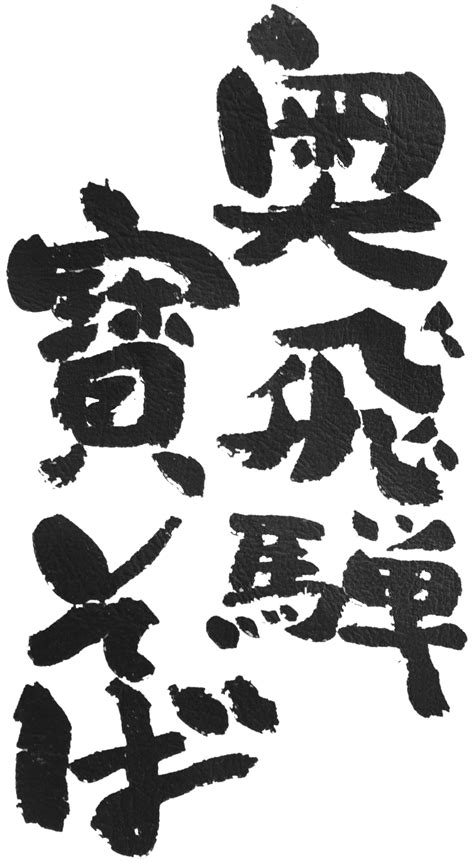 奥飛騨
寳そば